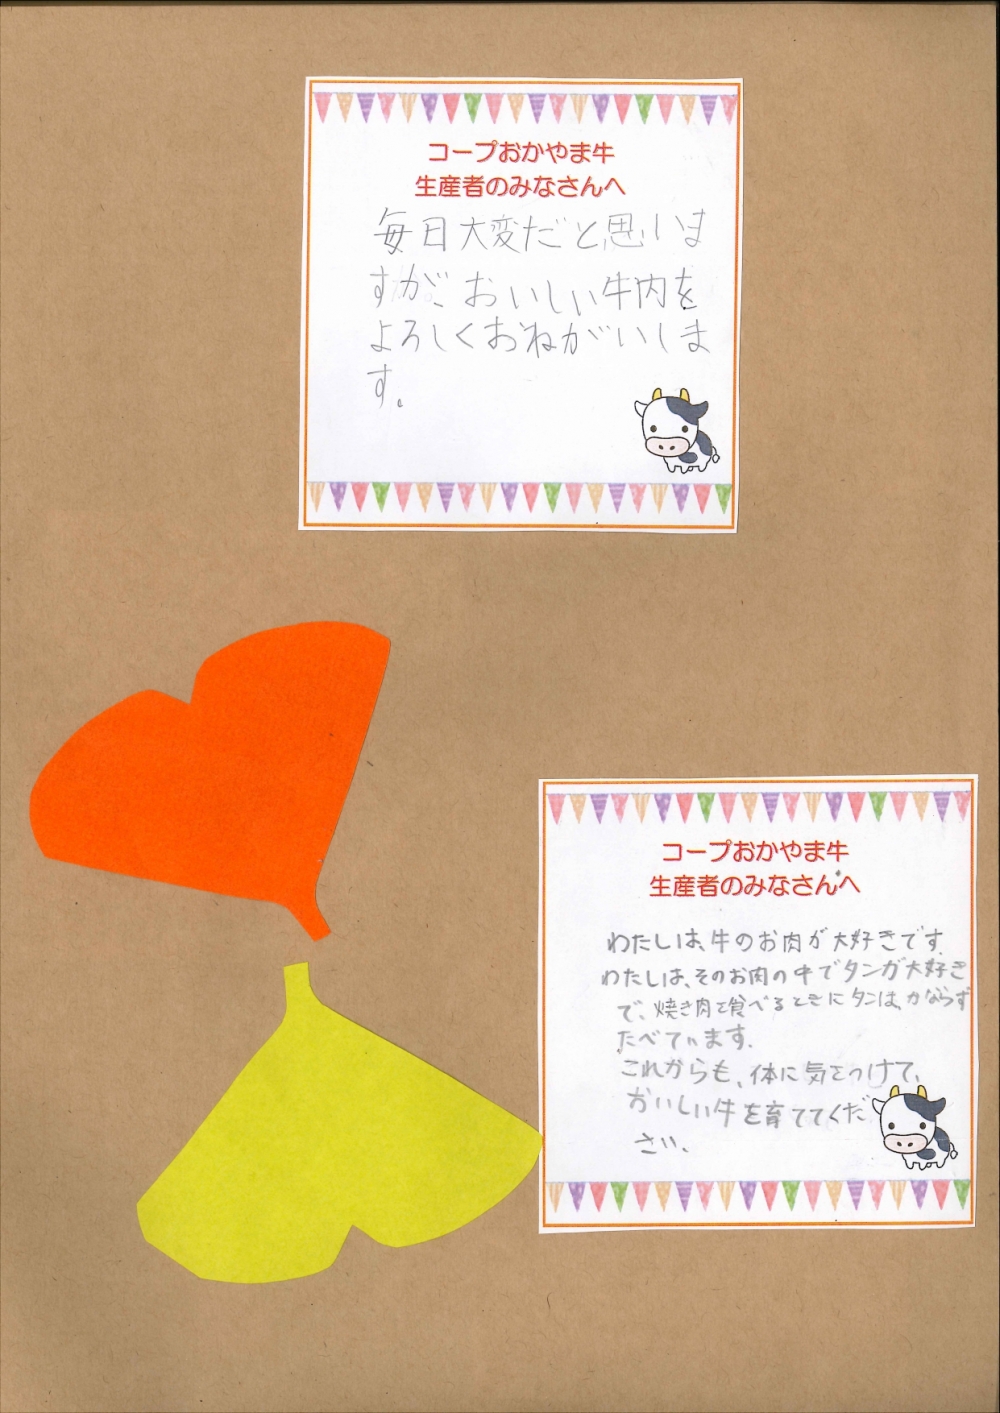 コープおかやま牛
生産者のみなさんへ
毎日大変だと思いま
すが、おいしい牛内を
よろしくおねがいしま
す。
コープおかやま牛
生産者のみなさんへ
わたしは、牛のお肉が大好きです。
わたしは、そのお肉の中でタンが大好き
で、焼き肉を食べるときにタンは、かならず
たべています。
これからも、体に気をつけて、
おいしい牛を育ててくだ
さい。